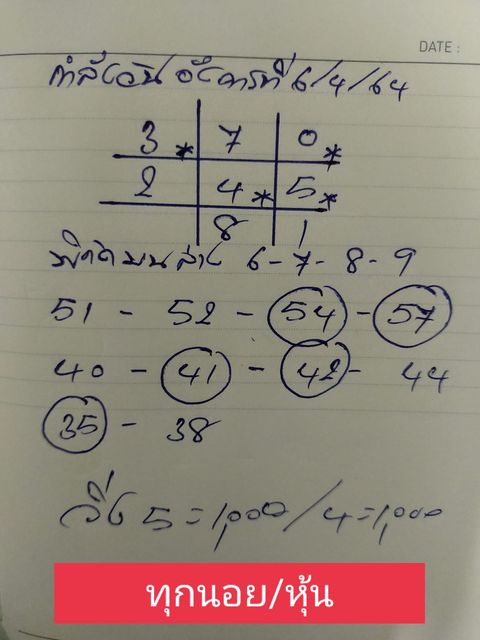 DATE :
กำลังวัน อังคารที่ 6/4/64
3* 7 0*
2 4* 5*
8 1
พิกัดบนล่าง 6-7-8-9
51 - 52 - 54 - 57
40 - 41 - 42 - 44
35 - 38
วิ่ง 5=1,000/4=1,000
ทุกนอย/หุ้น